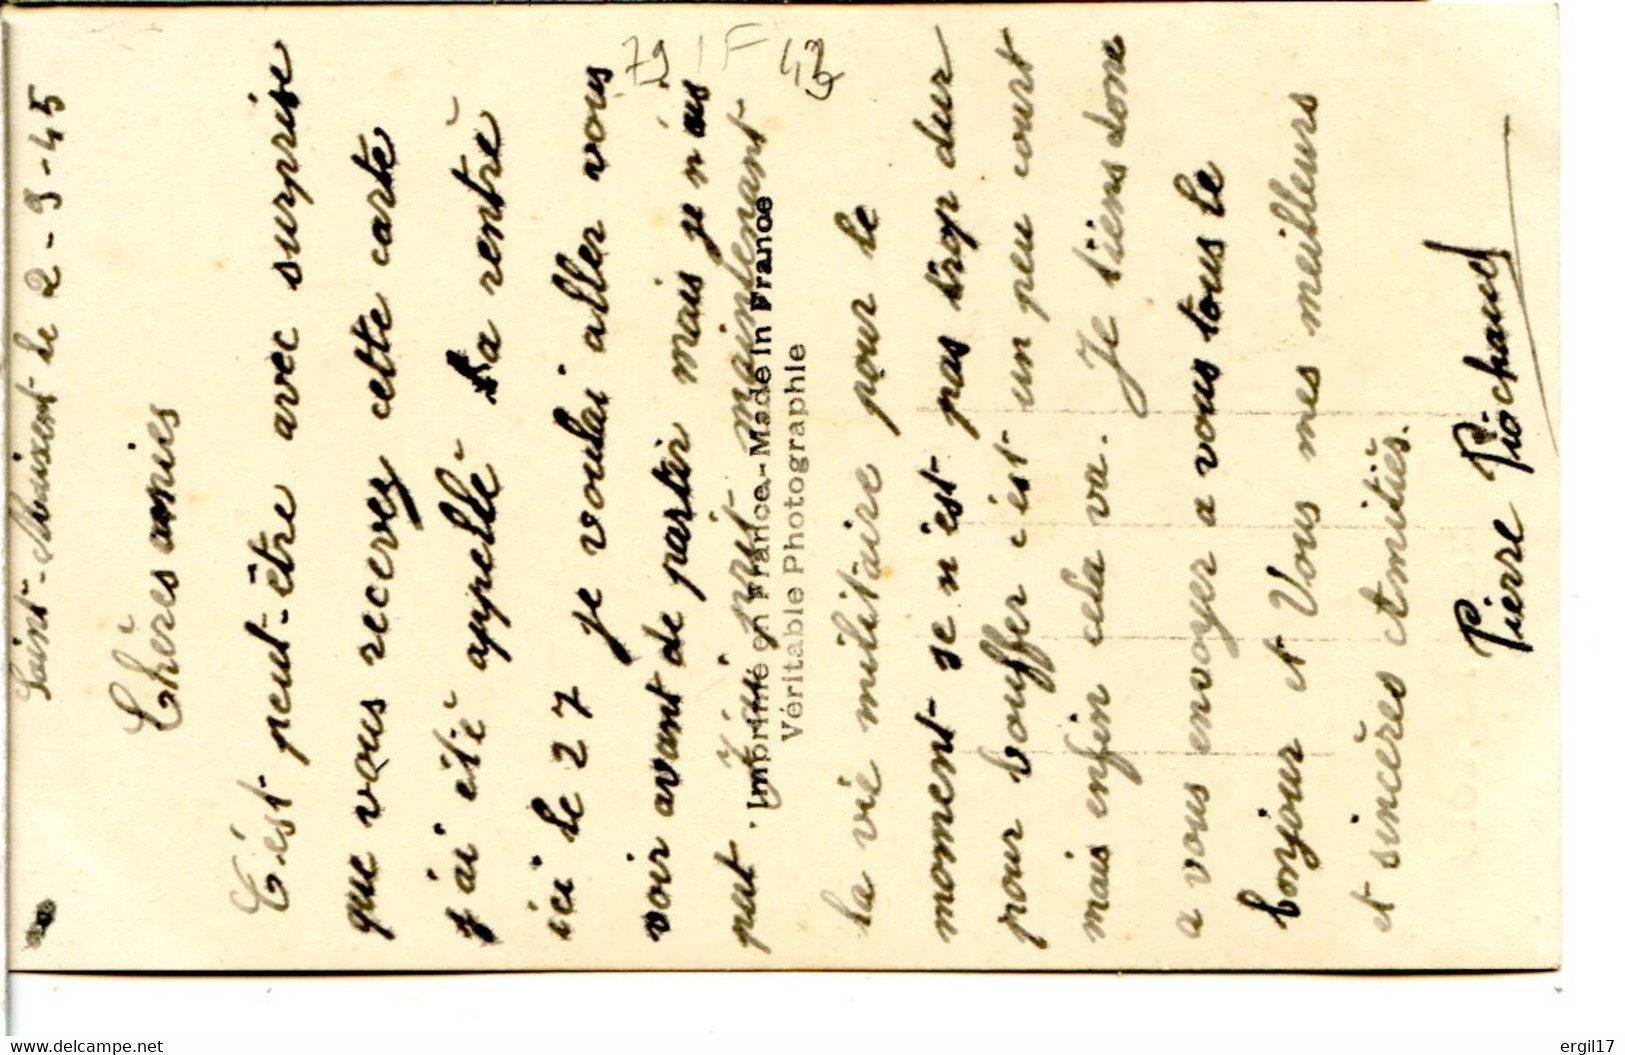 Saint-Maixent le 2-9-45
Chères amies
C'est peut-être avec surprise
que vous recevez cette carte
j'ai étè appellè la rentrè
ici le 27 je voulai aller vous
voir avant de partir mais je n'ais
put. maintenant
la vie militaire pour le
moment se n'est pas trop dur
pour bouffer c'est un peu court
mais enfin cela va. Je tiens donc
a vous envoyer a vous tous le
bonjour et Vous mes meilleurs
et sincères Amitiès.
Pierre Piochaud
79 1F 42
Imprimé en France.-Made in France
Véritable Photographie
delcampe.net
ergil17